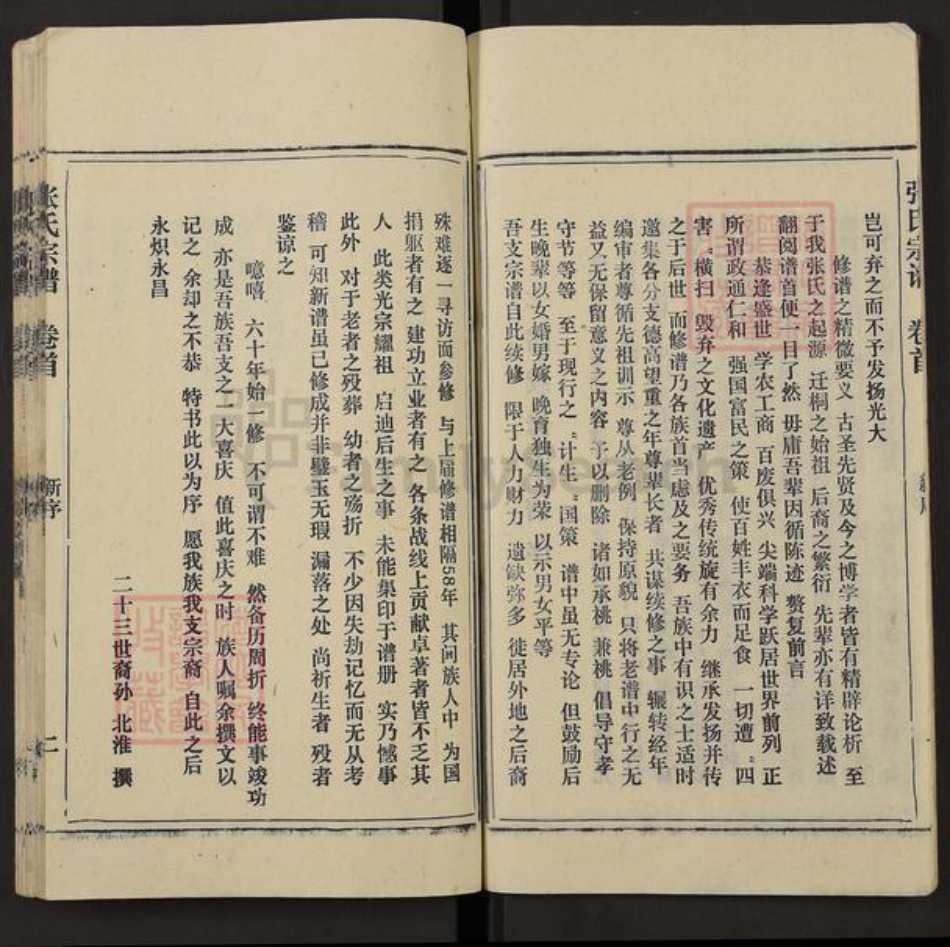 张氏宗谱 卷首
岂可弃之而不予发扬光大
修谱之精微要义 古圣先贤及今之博学者皆有精辟论析 至
于我张氏之起源 迁桐之始祖 后裔之繁衍 先辈亦有详致载述
翻阅谱首便一目了然 毋庸吾辈因循陈迹 赘复前言
恭逢盛世 学农工商 百废俱兴 尖端科学跃居世界前列 正
所谓政通仁和 强国富民之策 使百姓丰衣而足食 一切遭“四
害”横扫 毁弃之文化遗产 优秀传统旋有余力 继承发扬并传
之于后世 而修谱乃各族首当虑及之要务 吾族中有识之士适时
邀集各分支德高望重之年尊辈长者 共谋续修之事 辗转经年
编审者尊循先祖训示 尊从老例 保持原貌 只将老谱中行之无
益又无保留意义之内容 予以删除 诸如承桃 兼桃 倡导守孝
守节等等 至于现行之“计生”国策 谱中虽无专论 但鼓励后
生晚辈以女婚男嫁 晚育独生为荣 以示男女平等
吾支宗谱自此续修 限于人力财力 遗缺弥多 徙居外地之后裔
殊难逐一寻访而参修 与上届修谱相隔58年 其间族人中 为国
捐躯者有之 建功立业者有之 各条战线上贡献卓著者皆不乏其
人 此类光宗耀祖 启迪后生之事 未能梟印于谱册 实乃憾事
此外 对于老者之殁葬 幼者之殇折 不少因失劫记忆而无从考
稽 可知新谱虽已修成并非璧玉无瑕 漏落之处 尚祈生者 殁者
鉴谅之
噫嘻 六十年始一修 不可谓不难 然备历周折 终能事竣功
成 亦是吾族吾支之一大喜庆 值此喜庆之时 族人嘱余撰文以
记之 余却之不恭 特书此以为序 愿我族我支宗裔 自此之后
永炽永昌
二十三世裔孙 北淮 撰
张氏宗谱 卷首 新序 二